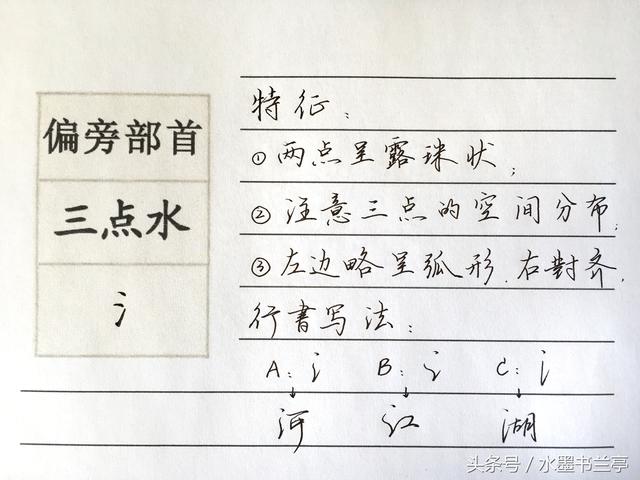 偏旁部首
三点水
氵
特征：
①两点呈露珠状；
②注意三点的空间分布；
③左边略呈弧形.右對齐.
行書写法：
A：氵 B：氵 C：氵
河 江 湖
头条号／水墨书兰亭